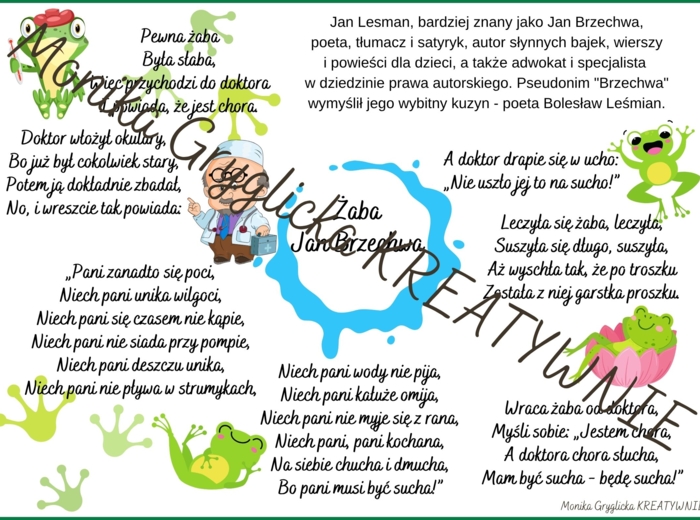 Pewna żaba
Była słaba,
Więc przychodzi do doktora
I powiada, że jest chora.
Doktor włożył okulary,
Bo już był cokolwiek stary,
Potem ją dokładnie zbadał,
No, i wreszcie tak powiada:
„Pani zanadto się poci,
Niech pani unika wilgoci,
Niech pani się czasem nie kąpie,
Niech pani nie siada przy pompie,
Niech pani deszczu unika,
Niech pani nie pływa w strumykach,
Niech pani wody nie pija,
Niech pani kałuże omija,
Niech pani nie myje się z rana,
Niech pani, pani kochana,
Na siebie chucha i dmucha,
Bo pani musi być sucha!”
Wraca żaba od doktora,
Myśli sobie: „Jestem chora,
A doktora chora słucha,
Mam być sucha - będę sucha!”
Leczyła się żaba, leczyła,
Suszyła się długo, suszyła,
Aż wyschła tak, że po troszku
Została z niej garstka proszku.
A doktor drapie się w ucho:
„Nie uszło jej to na sucho!”
Jan Lesman, bardziej znany jako Jan Brzechwa,
poeta, tłumacz i satyryk, autor słynnych bajek, wierszy
i powieści dla dzieci, a także adwokat i specjalista
w dziedzinie prawa autorskiego. Pseudonim "Brzechwa"
wymyślił jego wybitny kuzyn - poeta Bolesław Leśmian.
Żaba
Jan Brzechwa
Monika Gryglicka KREATYWNIE
Monika Gryglicka KREATYWNIE